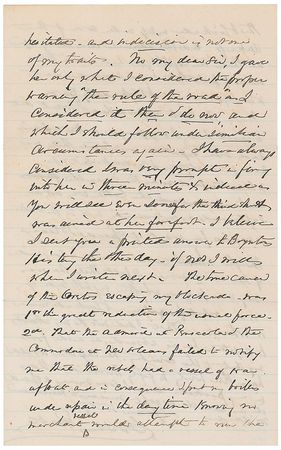 hesitated - and indecision is not one
of my traits. No my dear Sir, I gave
her only what I considered the proper
warning "the rule of the road" as I
considered it then & do now and
which I should follow under similar
circumstances again - I have always
considered I was very prompt in firing
into her in three minutes & indeed as
you will see even sooner for the third shot
was aimed at her forefoot. I believe
I sent you a printed answer to Boynton's
History the other day - if not I will
when I write next. The true cause
of the escaping my blockade - was
1st the great reduction of the armed force -
2nd That the Admiral at Pensacola & the
Commodore at New Orleans failed to notify
me that the rebels had a vessel of war
afloat and in consequence I put my boilers
under repair in the day time knowing no
merchant vessel would attempt to run the